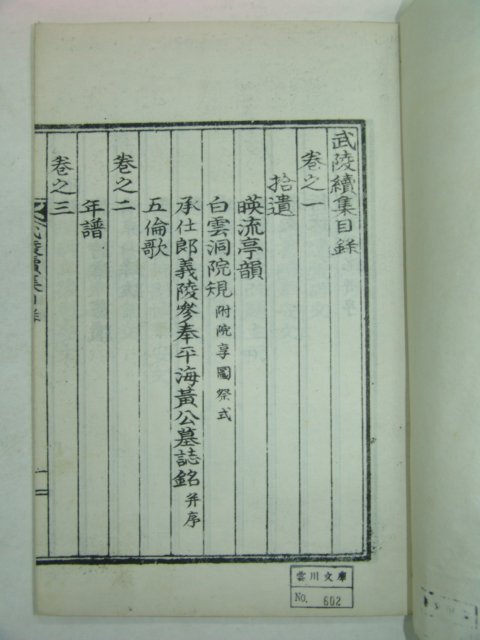 武陵續集目錄
卷之一
拾遺
暎流亭韻
白雲洞院規 附院享圖祭式
承仕郎義陵參奉平海黃公墓誌銘 并序
五倫歌
卷之二
年譜
卷之三
雲川文庫
No. 602